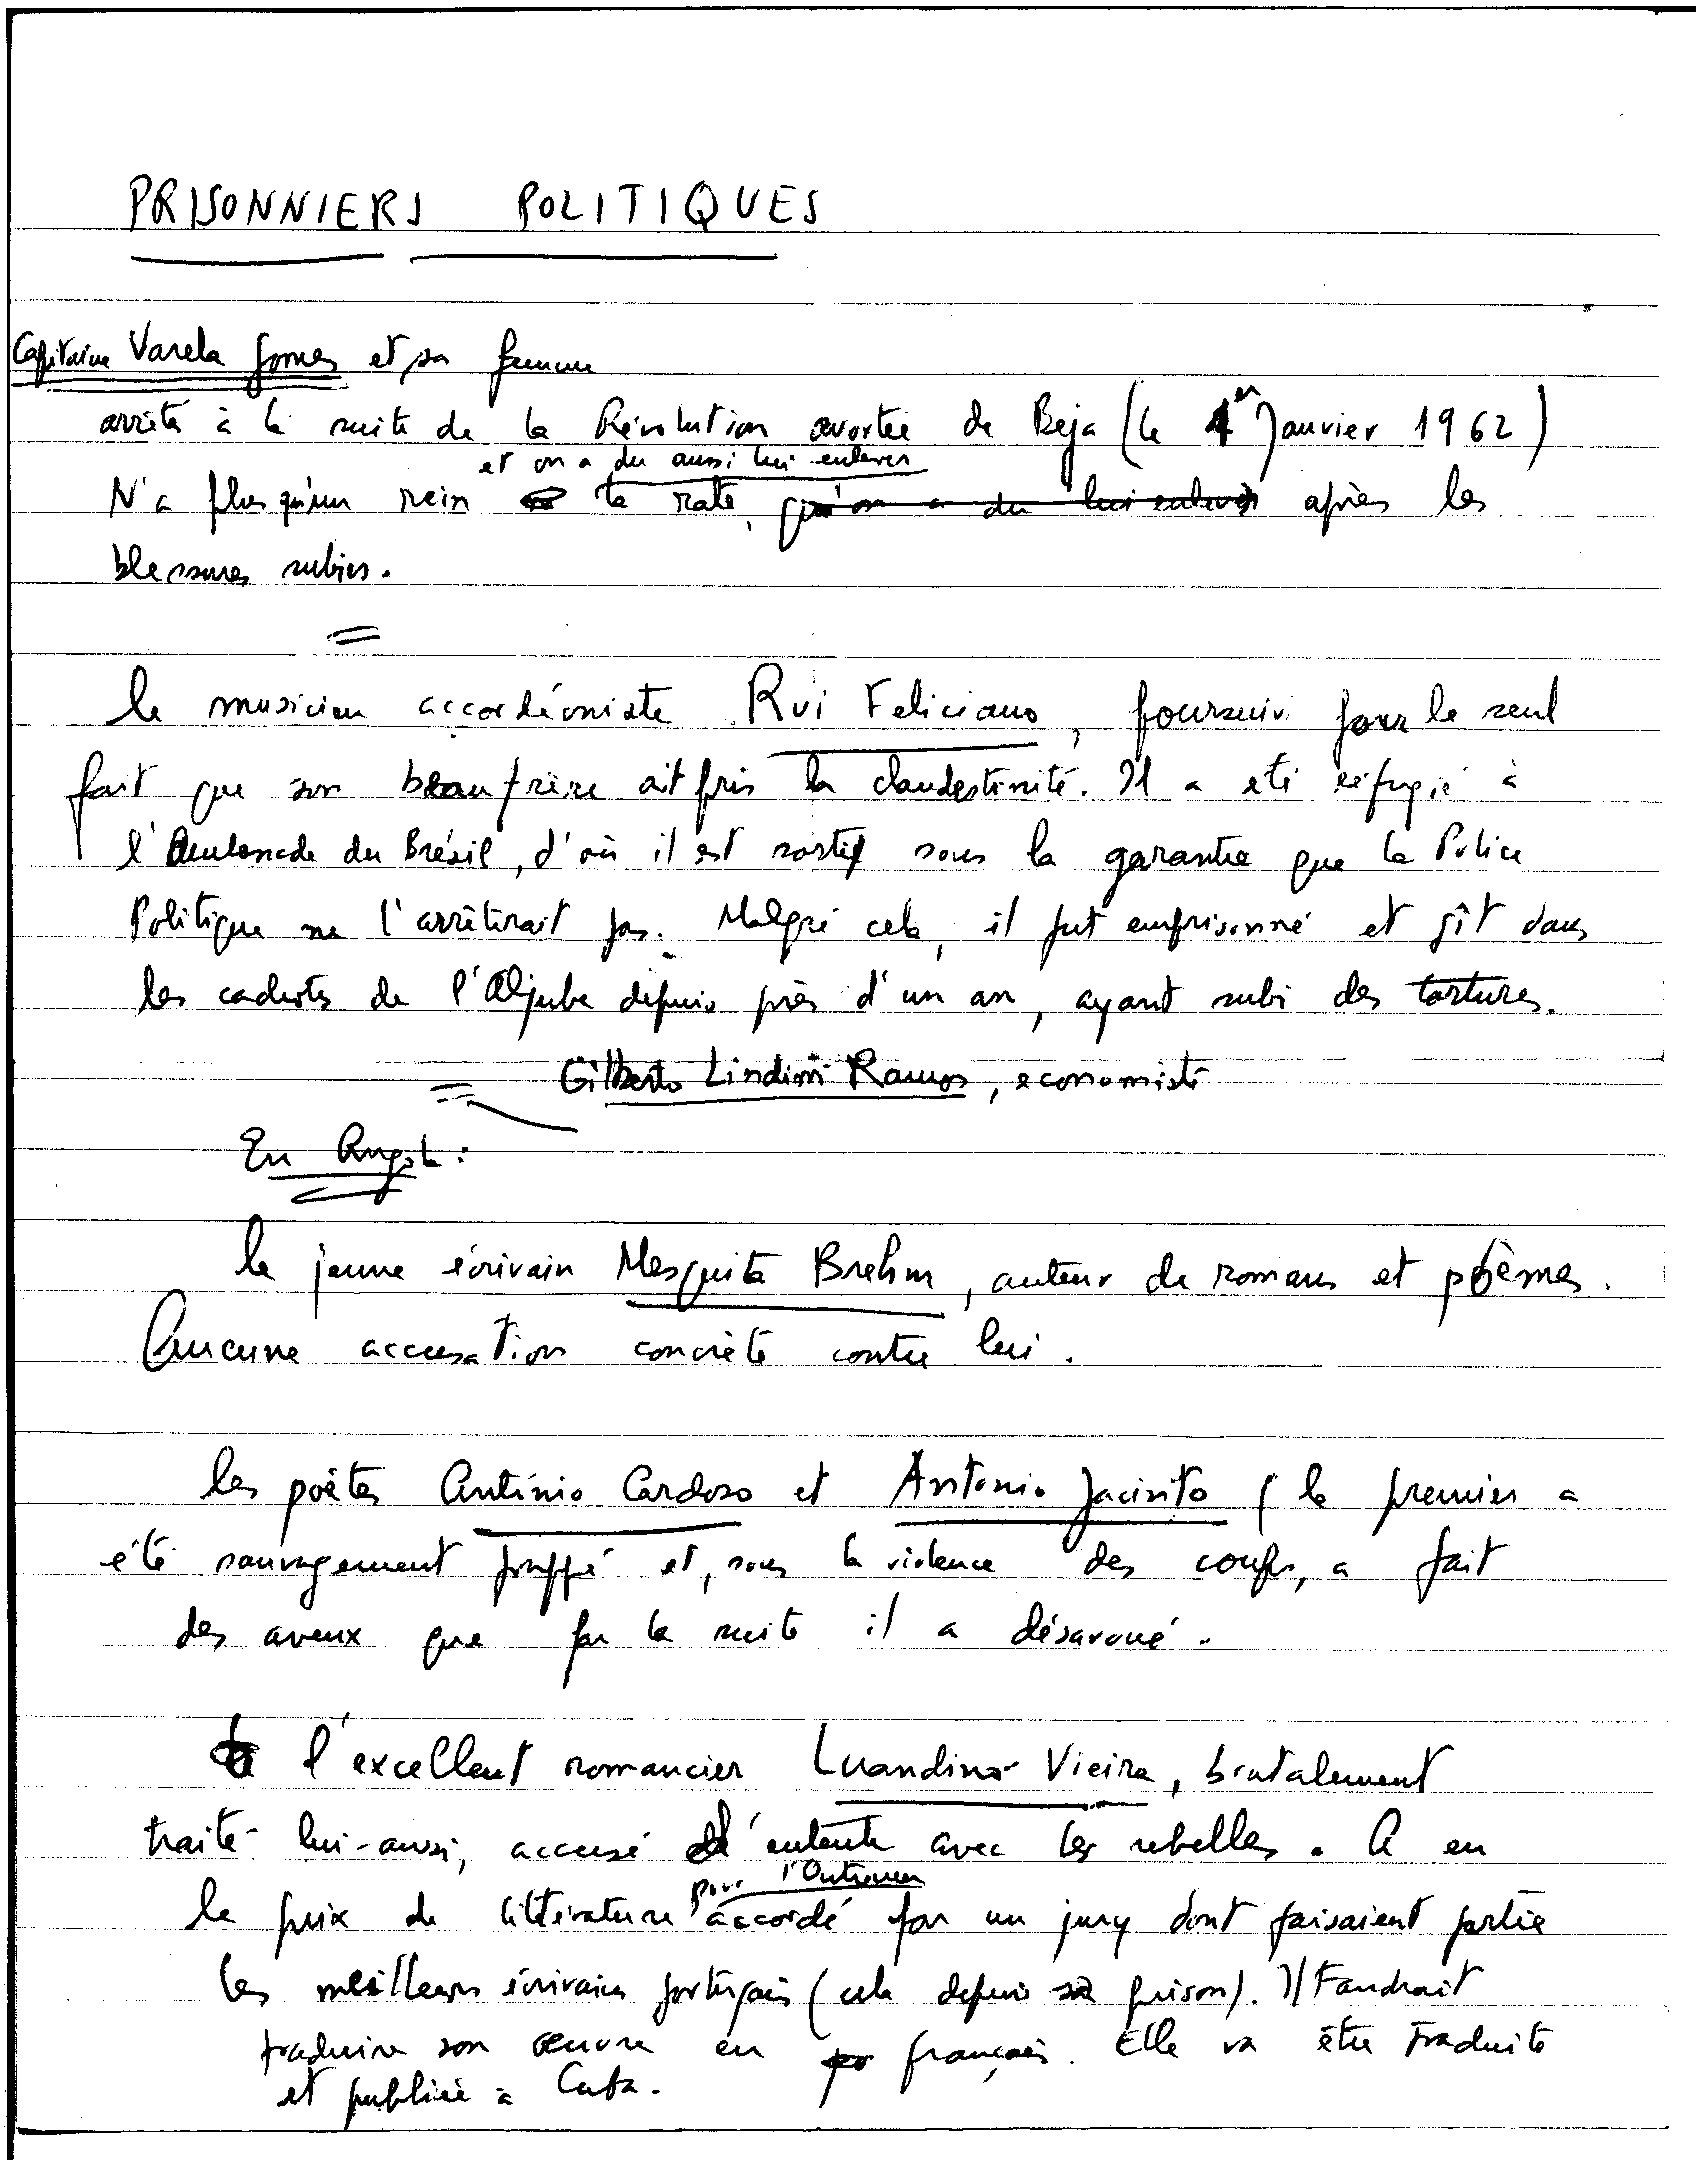 PRISONNIERS POLITIQUES
Capitaine Varela Gomes et sa femme
arrêté à la suite de la Révolution avortée de Beja (le 1er Janvier 1962)
et on a du aussi lui enlever
N'a plus qu'un rein la rate, qu'on a du lui enlever après les
blessures subies.
le musicien accordéoniste Rui Feliciano, poursuivi pour le seul
fait que son beau frère ait pris la clandestinité. Il a été réfugié à
l'Ambassade du Brésil, d'où il est sorti sous la garantie que la Police
Politique ne l'arrêterait pas. Malgré cela, il fut emprisonné et gît dans
les cachots de l'Aljube depuis près d'un an, ayant subi des tortures.
Gilberto Lindim Ramos, economiste
En Angola :
le jeune écrivain Mesquita Brehm, auteur de romans et poèmes.
Aucune accusation concrète contre lui.
les poètes António Cardoso et Antonio Jacinto (le premier a
été sauvagement frappé et, sous la violence des coups, a fait
des aveux que par la suite il a désavoué.
l'excellent romancier Luandino Vieira, brutalement
traité lui-aussi, accusé d'entente avec les rebelles. A eu
pour l'Outremer
le prix de littérature accordé par un jury dont faisaient partie
les meilleurs écrivains portugais (cela depuis sa prison). Il Faudrait
traduire son œuvre en français. Elle va être traduite
et publiée à Cuba.